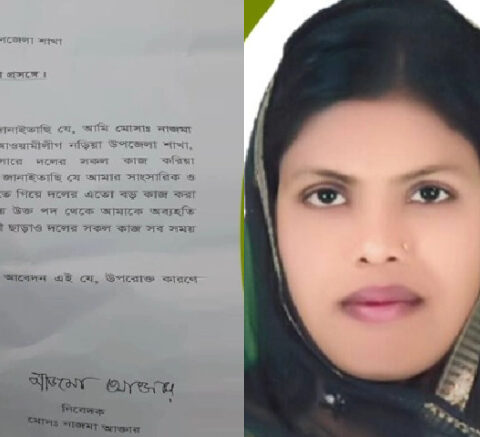 পজেলা শাখা
প্রসঙ্গে।
জানাইতাছি যে, আমি মোসাঃ নাজমা
আওয়ামীলীগ নড়িয়া উপজেলা শাখা,
সারে দলের সকল কাজ করিয়া
জানাইতাছি যে আমার সাংসারিক ও
তে গিয়ে দলের এতো বড় কাজ করা
উক্ত পদ থেকে আমাকে অব্যহতি
ছাড়াও দলের সকল কাজ সব সময়
আবেদন এই যে, উপরোক্ত কারণে
নাজমা আক্তার
নিবেদক
মোসঃ নাজমা আক্তার